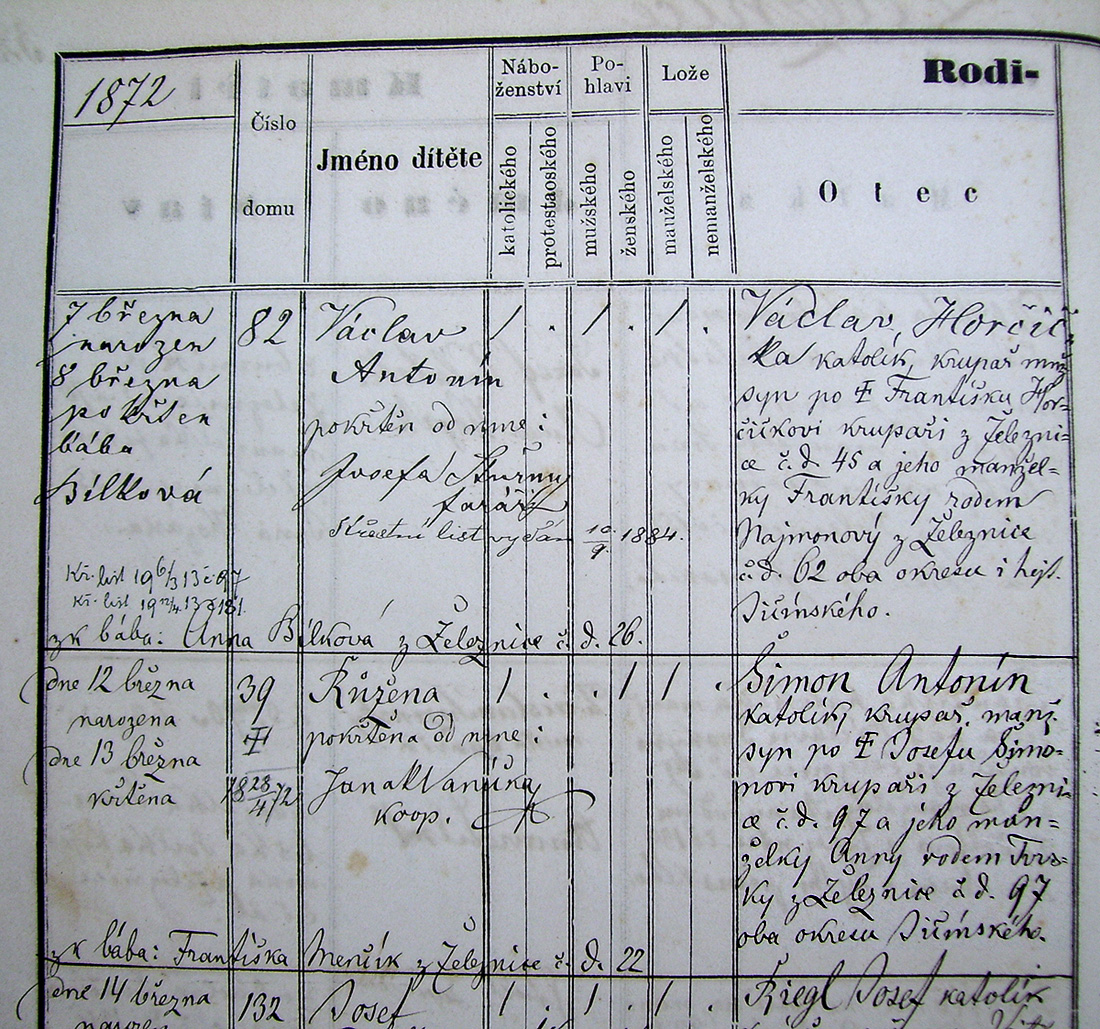 1872
Číslo
domu
Jméno dítěte
Nábo-
ženství
katolického
protestaoského
Po-
hlavi
mužského
ženského
Lože
mauželského
nemanželského
Rodi-
Otec
7 března
narozen
8 března
pokřten
bába
Bílková
82
Václav
Antonín
pokřtěn od mne:
Josefa
faráře
list vydán 10/9 1884.
1 . 1 . 1 .
Václav Horčič-
ka katolík, krupař
syn po ☩ Františku Hor-
čičkovi krupaři z Železni-
ce č.d. 45 a jeho manžel-
ky Františky rodem
Najmonový z Železnice
č.d. 62 oba okresu i hejt.
Jičínského.
Kř. list 19
Kř. list 19
zk bába: Anna Bílková z Železnice č. d. 26.
dne 12 března
narozena
dne 13 března
křtěna
39
☩
18 28/4 72
Růžena
pokřtěna od mne:
Jana Vaníčka
koop.
1 . . 1 1 .
Šimon Antonín
katolík, krupař, manž.
syn po ☩ Josefu Šimo-
novi krupaři z Železni-
ce č.d. 97 a jeho man-
želky Anny rodem
ky z Železnice č.d. 97
oba okresu Jičínského.
zk bába: Františka Menčík z Železnice č. d. 22
dne 14 března
narozen
132
Josef
1 . 1 . 1 .
Riegl Josef katolík